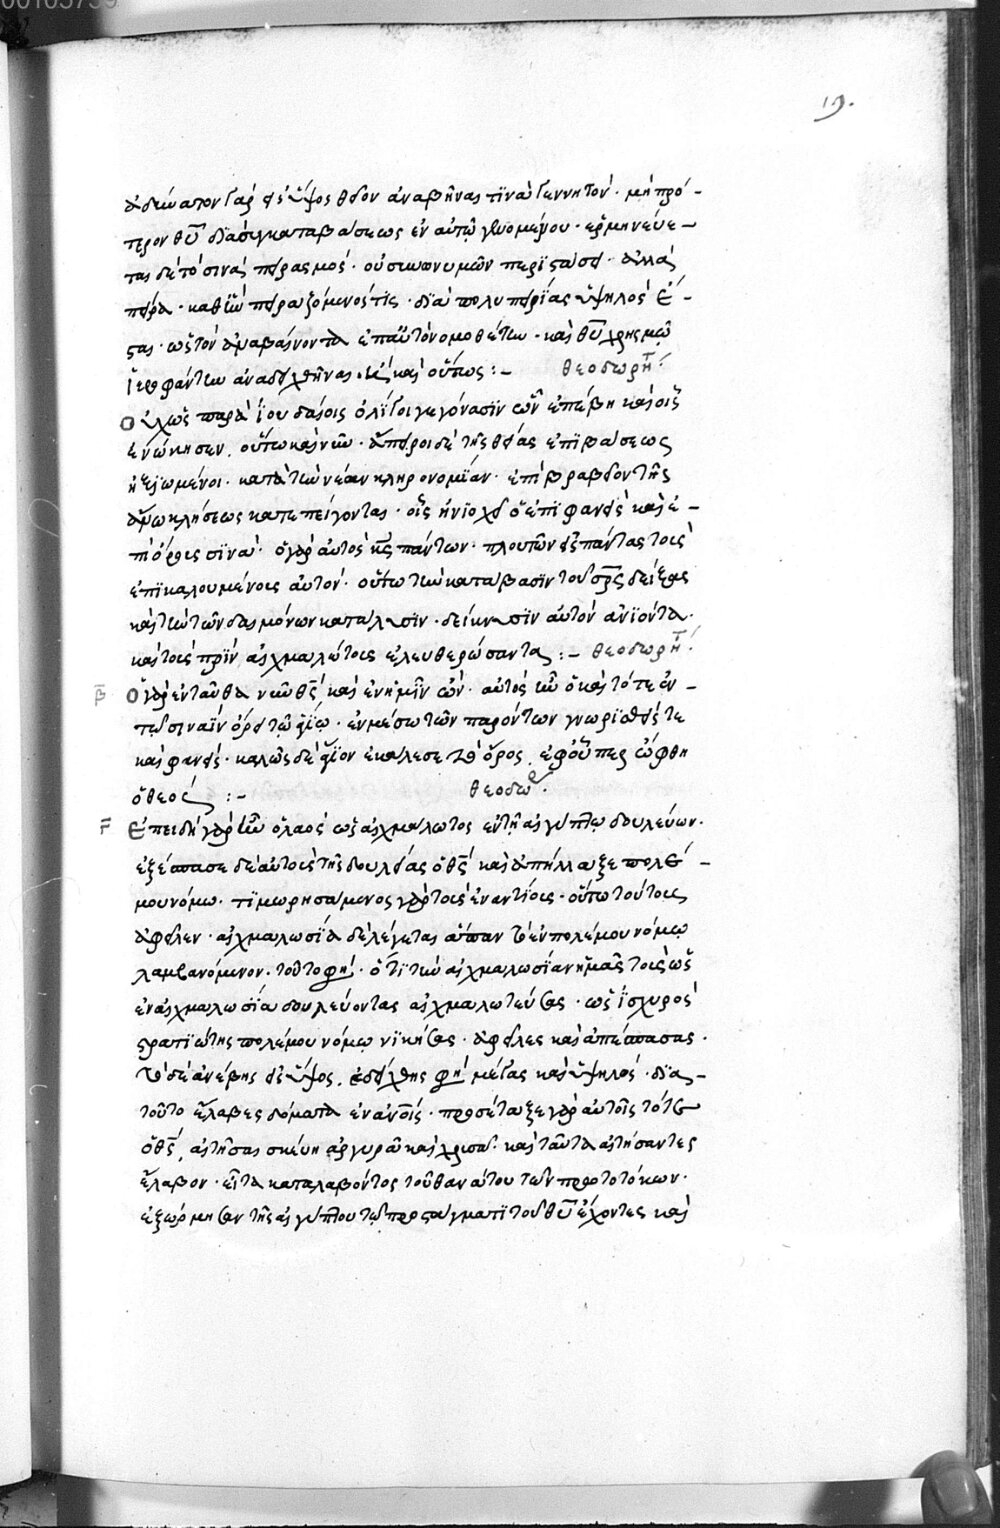 19.
ἀδύνατον γὰρ εἰς ὕψος θεὸν ἀναβῆναι τινὰ γεννητὸν· μὴ πρό-
τερον θῦ διὰ συγκαταβάσεως ἐν αὐτῷ γενομένου· ἑρμηνεύε-
ται δὲ τὸ σινὰ πειρασμός· οὐ συνωνυμῶν
πεῖρα· καθ' ἣν πειραζόμενός τις· διὰ πολυπειρίας ὑψηλὸς ἔ-
σται· ὡς τὸν ἀναβαίνοντα ἐπ' αὐτὸ νομοθέτην· καὶ θῦ χρησμῶ
ἱεροφάντην ἀναδειχθῆναι καὶ οὕτως :- θεοδωρήτ
ὄχλως παρὰ ἰουδαίοις ὀλίγοι γεγόνασιν ὧν ἐπέβη καὶ οἷς
ἐνώκησεν. οὕτω καὶ νῦν· ἄπειροι δὲ τῆς θείας ἐπιβάσεως
ἠξιωμένοι· κατὰ τὴν νέαν κληρονομίαν· ἐπὶ βραβεῖον τῆς
ἄνω κλήσεως κατεπείγονται· οἷς ἡνίοχος ὁ ἐπιφανεὶς καὶ ἐ-
πὶ ὄρεις σινά· ὁ γὰρ αὐτὸς κς πάντων· πλουτῶν εἰς πάντας τοὺς
ἐπικαλουμένους αὐτόν· οὕτω τὴν κατάβασιν τοῦ σρς δείξας
καὶ τὴν τῶν δαιμόνων κατάλυσιν· δείκνυσιν αὐτὸν ἀνιόντα·
καὶ τοὺς πρὶν αἰχμαλώτους ἐλευθερώσαντα :- θεοδωρήτ
β ὁ γὰρ ἐνταῦθα νῦν θς καὶ ἐν ἡμῖν ὤν· αὐτὸς ἦν ὁ καὶ τότε ἐν
τῷ σιναΐν ὄρει τῷ ἁγίῳ· ἐν μέσω τῶν παρόντων γνωρισθείς τε
καὶ φανείς· καλῶς δὲ ἅγιον ἐκάλεσε τὸ ὄρος. ἐφ' οὗπερ ὤφθη
ὁ θεός :- θεοδω
γ Ἐπειδὴ γὰρ ἦν ὁ λαὸς ὡς αἰχμάλωτος ἐν τῇ αἰγύπτω δουλεύων·
ἐξέσπασε δὲ αὐτοὺς τῆς δουλείας ὁ θς καὶ ἀπήλλαξε πολέ-
μου νόμω· τιμωρησάμενος γὰρ τοὺς ἐναντίους· οὕτω τούτους
ἀφεῖλεν· αἰχμαλωσία δὲ λέγεται ἅπαν τὸ ἐν πολέμου νόμῳ
λαμβανόμενον· τοῦτο φησί· ὅτι τὴν αἰχμαλωσίαν ἡμᾶς τοὺς ὡς
ἐν αἰχμαλωσία δουλεύοντας αἰχμαλωτεύσας· ὡς ἰσχυρὸς
στρατιώτης πολέμου νόμῳ νικήσας· ἀφεῖλες καὶ ἀπέσπασας·
τὸ δὲ ἀνέβης εἰς ὕψος. ἐδείχθης φησὶ μέγας καὶ ὑψηλός· διὰ-
τοῦτο ἔλαβες δόματα ἐν ἀνοις· προσέταξε γὰρ αὐτοῖς τότε
ὁ θς, αἰτῆσαι σκεύη ἀργυρᾶ καὶ χρυσᾶ· καὶ ταῦτα αἰτήσαντες
ἔλαβον· εἶτα καταλαβόντος τοῦ θανάτου τῶν πρωτοτόκων·
ἐξώρμησαν τῆς αἰγύπτου τῷ προστάγματι τοῦ θῦ ἔχοντες καὶ